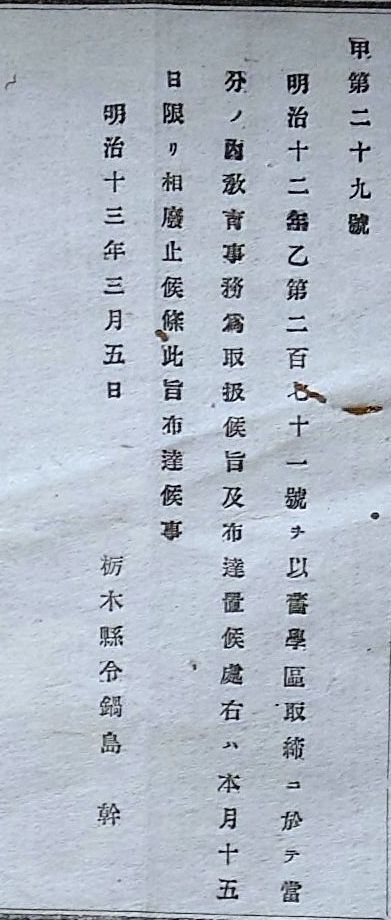 甲第二十九號
明治十二年乙第二百七十一號ヲ以舊學區取締ニ於テ當
分ノ內敎育事務爲取扱候旨及布達置候處右ハ本月十五
日限リ相廢止候條此旨布達候事
明治十三年三月五日
栃木縣令鍋島幹